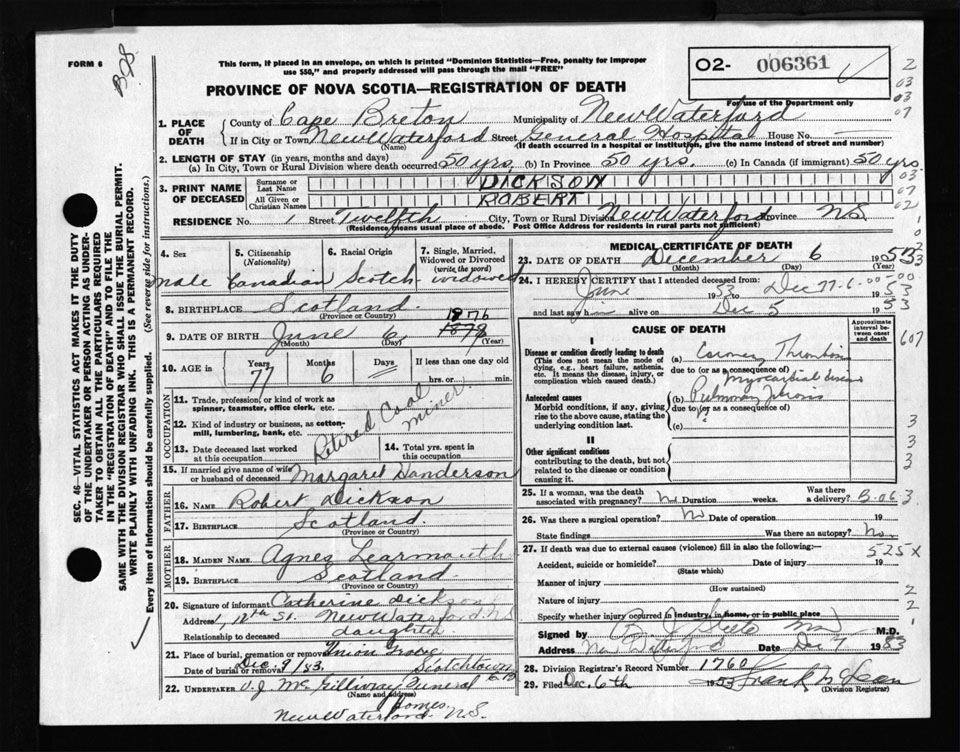 FORM 6
BDS.
This form, if placed in an envelope, on which is printed "Dominion Statistics—Free, penalty for improper
use $50," and properly addressed will pass through the mail "FREE"
O2- 006361
For use of the Department only
PROVINCE OF NOVA SCOTIA—REGISTRATION OF DEATH
1. PLACE OF DEATH
County of Cape Breton Municipality of New Waterford
If in City or Town New Waterford Street General Hospital House No.
(Name) (If death occurred in a hospital or institution, give the name instead of street and number)
2. LENGTH OF STAY (in years, months and days)
(a) In City, Town or Rural Division where death occurred 50 yrs. (b) In Province 50 yrs. (c) In Canada (if immigrant) 50 yrs
3. PRINT NAME OF DECEASED
Surname or Last Name DICKSON
All Given or Christian Names ROBERT
RESIDENCE No. 1 Street Twelfth City, Town or Rural Division New Waterford Province N.S.
(Residence means usual place of abode. Post Office Address for residents in rural parts not sufficient)
4. Sex
5. Citizenship (Nationality)
6. Racial Origin
7. Single, Married, Widowed or Divorced (write the word)
male Canadian Scotch widowed
8. BIRTHPLACE Scotland
(Province or Country)
1876
9. DATE OF BIRTH June 6 1879
(Month) (Day) (Year)
10. AGE in
Years 77 Months 6 Days
If less than one day old
hrs. or min.
OCCUPATION
11. Trade, profession, or kind of work as
spinner, teamster, office clerk, etc.
12. Kind of industry or business, as cotton-
mill, lumbering, bank, etc.
Retired Coal miner
13. Date deceased last worked at this occupation
14. Total yrs. spent in this occupation
15. If married give name of wife or husband of deceased Margaret Sanderson
FATHER
16. NAME Robert Dickson
17. BIRTHPLACE Scotland.
(Province or Country)
MOTHER
18. MAIDEN NAME Agnes Learmouth
19. BIRTHPLACE Scotland
(Province or Country)
20. Signature of informant Catherine Dickson
Address 1, 12th St. New Waterford. N.S
Relationship to deceased daughter
21. Place of burial, cremation or removal Union Grove
Date of burial or removal Dec. 9/53. Scotchtown
C.B
22. UNDERTAKER V.J. McGillivray Funeral
(Name and address) Homes
New Waterford N.S.
MEDICAL CERTIFICATE OF DEATH
23. DATE OF DEATH December 6 1953
(Month) (Day) (Year)
24. I HEREBY CERTIFY that I attended deceased from:
June 1953 to Dec 6 1953
and last saw him alive on Dec 5 1953
CAUSE OF DEATH
Approximate interval between onset and death
I
Disease or condition directly leading to death
(This does not mean the mode of dying, e.g., heart failure, asthma, etc. It means the disease, injury, or complication which caused death.)
(a) Coronary Thrombosis
due to (or as a consequence of)
Myocardial disease
Antecedent causes
Morbid conditions, if any, giving rise to the above cause, stating the underlying condition last.
(b) Pulmonary Fibrosis
due to (or as a consequence of)
(c)
II
Other significant conditions
contributing to the death, but not related to the disease or condition causing it.
25. If a woman, was the death associated with pregnancy? No Duration weeks. Was there a delivery?
B-063
26. Was there a surgical operation? No Date of operation 19
State findings Was there an autopsy? No
27. If death was due to external causes (violence) fill in also the following:—
525X
Accident, suicide or homicide? Date of injury 19
(State which)
Manner of injury
(How sustained)
Nature of injury
Specify whether injury occurred in industry, in home, or in public place
Signed by M.D.
Address New Waterford Date Dec 7 1953
28. Division Registrar's Record Number 1760
29. Filed Dec. 6th 1953
(Division Registrar)
SEC. 46—VITAL STATISTICS ACT MAKES IT THE DUTY
OF THE UNDERTAKER OR PERSON ACTING AS UNDER-
TAKER TO OBTAIN ALL THE PARTICULARS REQUIRED
IN THE "REGISTRATION OF DEATH" AND TO FILE THE
SAME WITH THE DIVISION REGISTRAR WHO SHALL ISSUE THE BURIAL PERMIT.
WRITE PLAINLY WITH UNFADING INK. THIS IS A PERMANENT RECORD.
Every item of information should be carefully supplied. (See reverse side for instructions.)
2
03
03
07
03
07
02
607
3
3
3
2
2